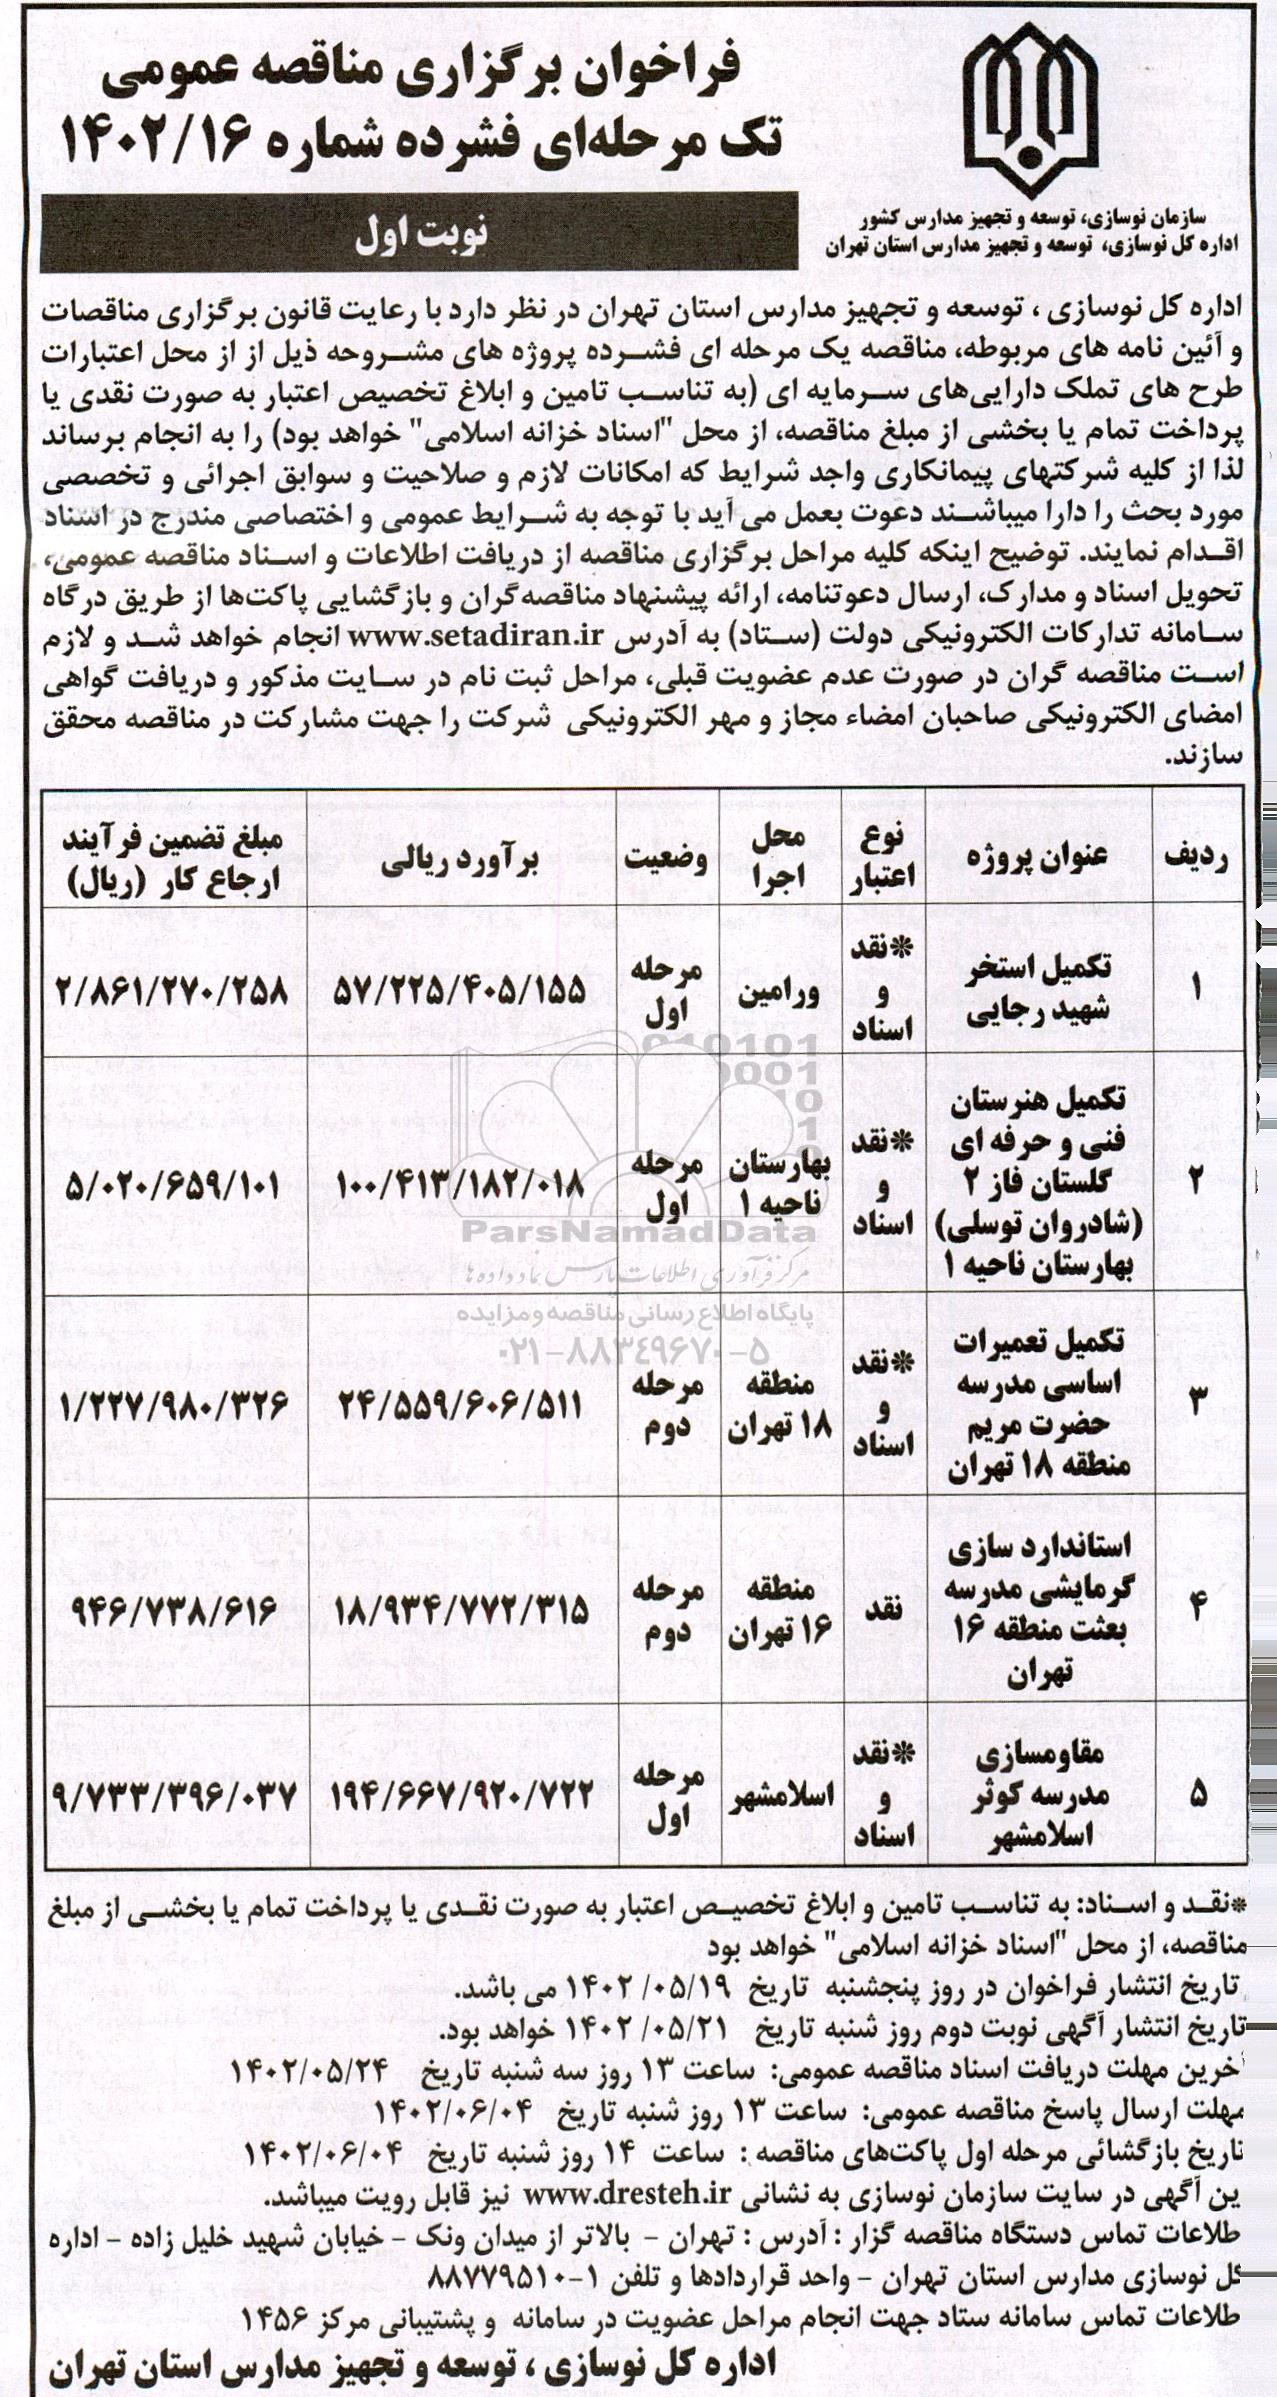 فراخوان برگزاری مناقصه عمومی
تک مرحله‌ای فشرده شماره ۱۴۰۲/۱۶
نوبت اول
سازمان نوسازی، توسعه و تجهیز مدارس کشور
اداره کل نوسازی، توسعه و تجهیز مدارس استان تهران
اداره کل نوسازی ، توسعه و تجهیز مدارس استان تهران در نظر دارد با رعایت قانون برگزاری مناقصات
و آئین نامه های مربوطه، مناقصه یک مرحله ای فشرده پروژه های مشروحه ذیل از از محل اعتبارات
طرح های تملک دارایی‌های سرمایه ای (به تناسب تامین و ابلاغ تخصیص اعتبار به صورت نقدی یا
پرداخت تمام یا بخشی از مبلغ مناقصه، از محل "اسناد خزانه اسلامی" خواهد بود) را به انجام برساند
لذا از کلیه شرکتهای پیمانکاری واجد شرایط که امکانات لازم و صلاحیت و سوابق اجرائی و تخصصی
مورد بحث را دارا میباشند دعوت بعمل می آید با توجه به شرایط عمومی و اختصاصی مندرج در اسناد
اقدام نمایند. توضیح اینکه کلیه مراحل برگزاری مناقصه از دریافت اطلاعات و اسناد مناقصه عمومی،
تحویل اسناد و مدارک، ارسال دعوتنامه، ارائه پیشنهاد مناقصه‌گران و بازگشایی پاکت‌ها از طریق درگاه
سامانه تدارکات الکترونیکی دولت (ستاد) به آدرس www.setadiran.ir انجام خواهد شد و لازم
است مناقصه گران در صورت عدم عضویت قبلی، مراحل ثبت نام در سایت مذکور و دریافت گواهی
امضای الکترونیکی صاحبان امضاء مجاز و مهر الکترونیکی شرکت را جهت مشارکت در مناقصه محقق
سازند.
ردیف عنوان پروژه نوع اعتبار محل اجرا وضعیت برآورد ریالی مبلغ تضمین فرآیند ارجاع کار (ریال)
۱ تکمیل استخر شهید رجایی *نقد و اسناد ورامین مرحله اول ۵۷/۲۲۵/۴۰۵/۱۵۵ ۲/۸۶۱/۲۷۰/۲۵۸
۲ تکمیل هنرستان فنی و حرفه ای گلستان فاز ۲ (شادروان توسلی) بهارستان ناحیه ۱ *نقد و اسناد بهارستان ناحیه ۱ مرحله اول ۱۰۰/۴۱۳/۱۸۲/۰۱۸ ۵/۰۲۰/۶۵۹/۱۰۱
۳ تکمیل تعمیرات اساسی مدرسه حضرت مریم منطقه ۱۸ تهران *نقد و اسناد منطقه ۱۸ تهران مرحله دوم ۲۴/۵۵۹/۶۰۶/۵۱۱ ۱/۲۲۷/۹۸۰/۳۲۶
۴ استاندارد سازی گرمایشی مدرسه بعثت منطقه ۱۶ تهران نقد منطقه ۱۶ تهران مرحله دوم ۱۸/۹۳۴/۷۷۲/۳۱۵ ۹۴۶/۷۳۸/۶۱۶
۵ مقاومسازی مدرسه کوثر اسلامشهر *نقد و اسناد اسلامشهر مرحله اول ۱۹۴/۶۶۷/۹۲۰/۷۲۲ ۹/۷۳۳/۳۹۶/۰۳۷
ParsNamadData
مرکز فرآوری اطلاعات پارس نماد داده ها
پایگاه اطلاع رسانی مناقصه و مزایده
۰۲۱-۸۸۳۴۹۶۷۰-۵
*نقد و اسناد: به تناسب تامین و ابلاغ تخصیص اعتبار به صورت نقدی یا پرداخت تمام یا بخشی از مبلغ
مناقصه، از محل "اسناد خزانه اسلامی" خواهد بود
تاریخ انتشار فراخوان در روز پنجشنبه تاریخ ۱۴۰۲/۰۵/۱۹ می باشد.
تاریخ انتشار آگهی نوبت دوم روز شنبه تاریخ ۱۴۰۲/۰۵/۲۱ خواهد بود.
آخرین مهلت دریافت اسناد مناقصه عمومی: ساعت ۱۳ روز سه شنبه تاریخ ۱۴۰۲/۰۵/۲۴
مهلت ارسال پاسخ مناقصه عمومی: ساعت ۱۳ روز شنبه تاریخ ۱۴۰۲/۰۶/۰۴
تاریخ بازگشائی مرحله اول پاکت‌های مناقصه : ساعت ۱۴ روز شنبه تاریخ ۱۴۰۲/۰۶/۰۴
ین آگهی در سایت سازمان نوسازی به نشانی www.dresteh.ir نیز قابل رویت میباشد.
طلاعات تماس دستگاه مناقصه گزار : آدرس : تهران - بالاتر از میدان ونک - خیابان شهید خلیل زاده - اداره
کل نوسازی مدارس استان تهران - واحد قراردادها و تلفن ۱-۸۸۷۷۹۵۱۰
طلاعات تماس سامانه ستاد جهت انجام مراحل عضویت در سامانه و پشتیبانی مرکز ۱۴۵۶
اداره کل نوسازی ، توسعه و تجهیز مدارس استان تهران